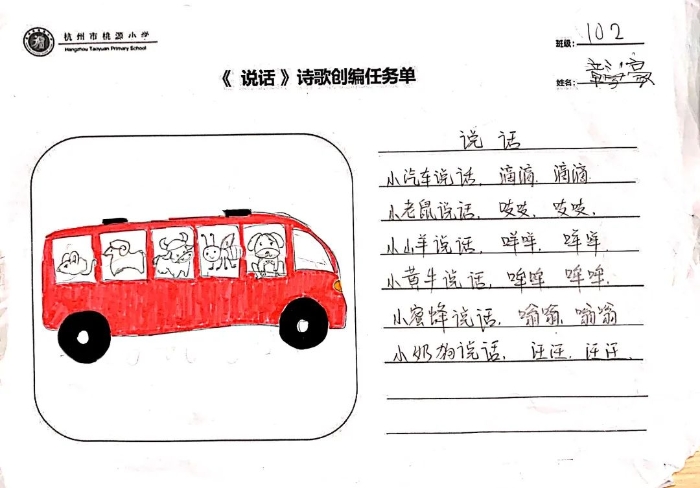 杭州市桃源小学
Hangzhou Taoyuan Primary School
班级: 102
《 说话 》诗歌创编任务单
姓名:
说 话
小汽车说话, 滴滴. 滴滴.
小老鼠说话, 吱吱, 吱吱,
小山羊说话, 咩咩, 咩咩.
小黄牛说话, 哞哞, 哞哞.
小蜜蜂说话, 嗡嗡, 嗡嗡
小奶狗说话, 汪汪, 汪汪.